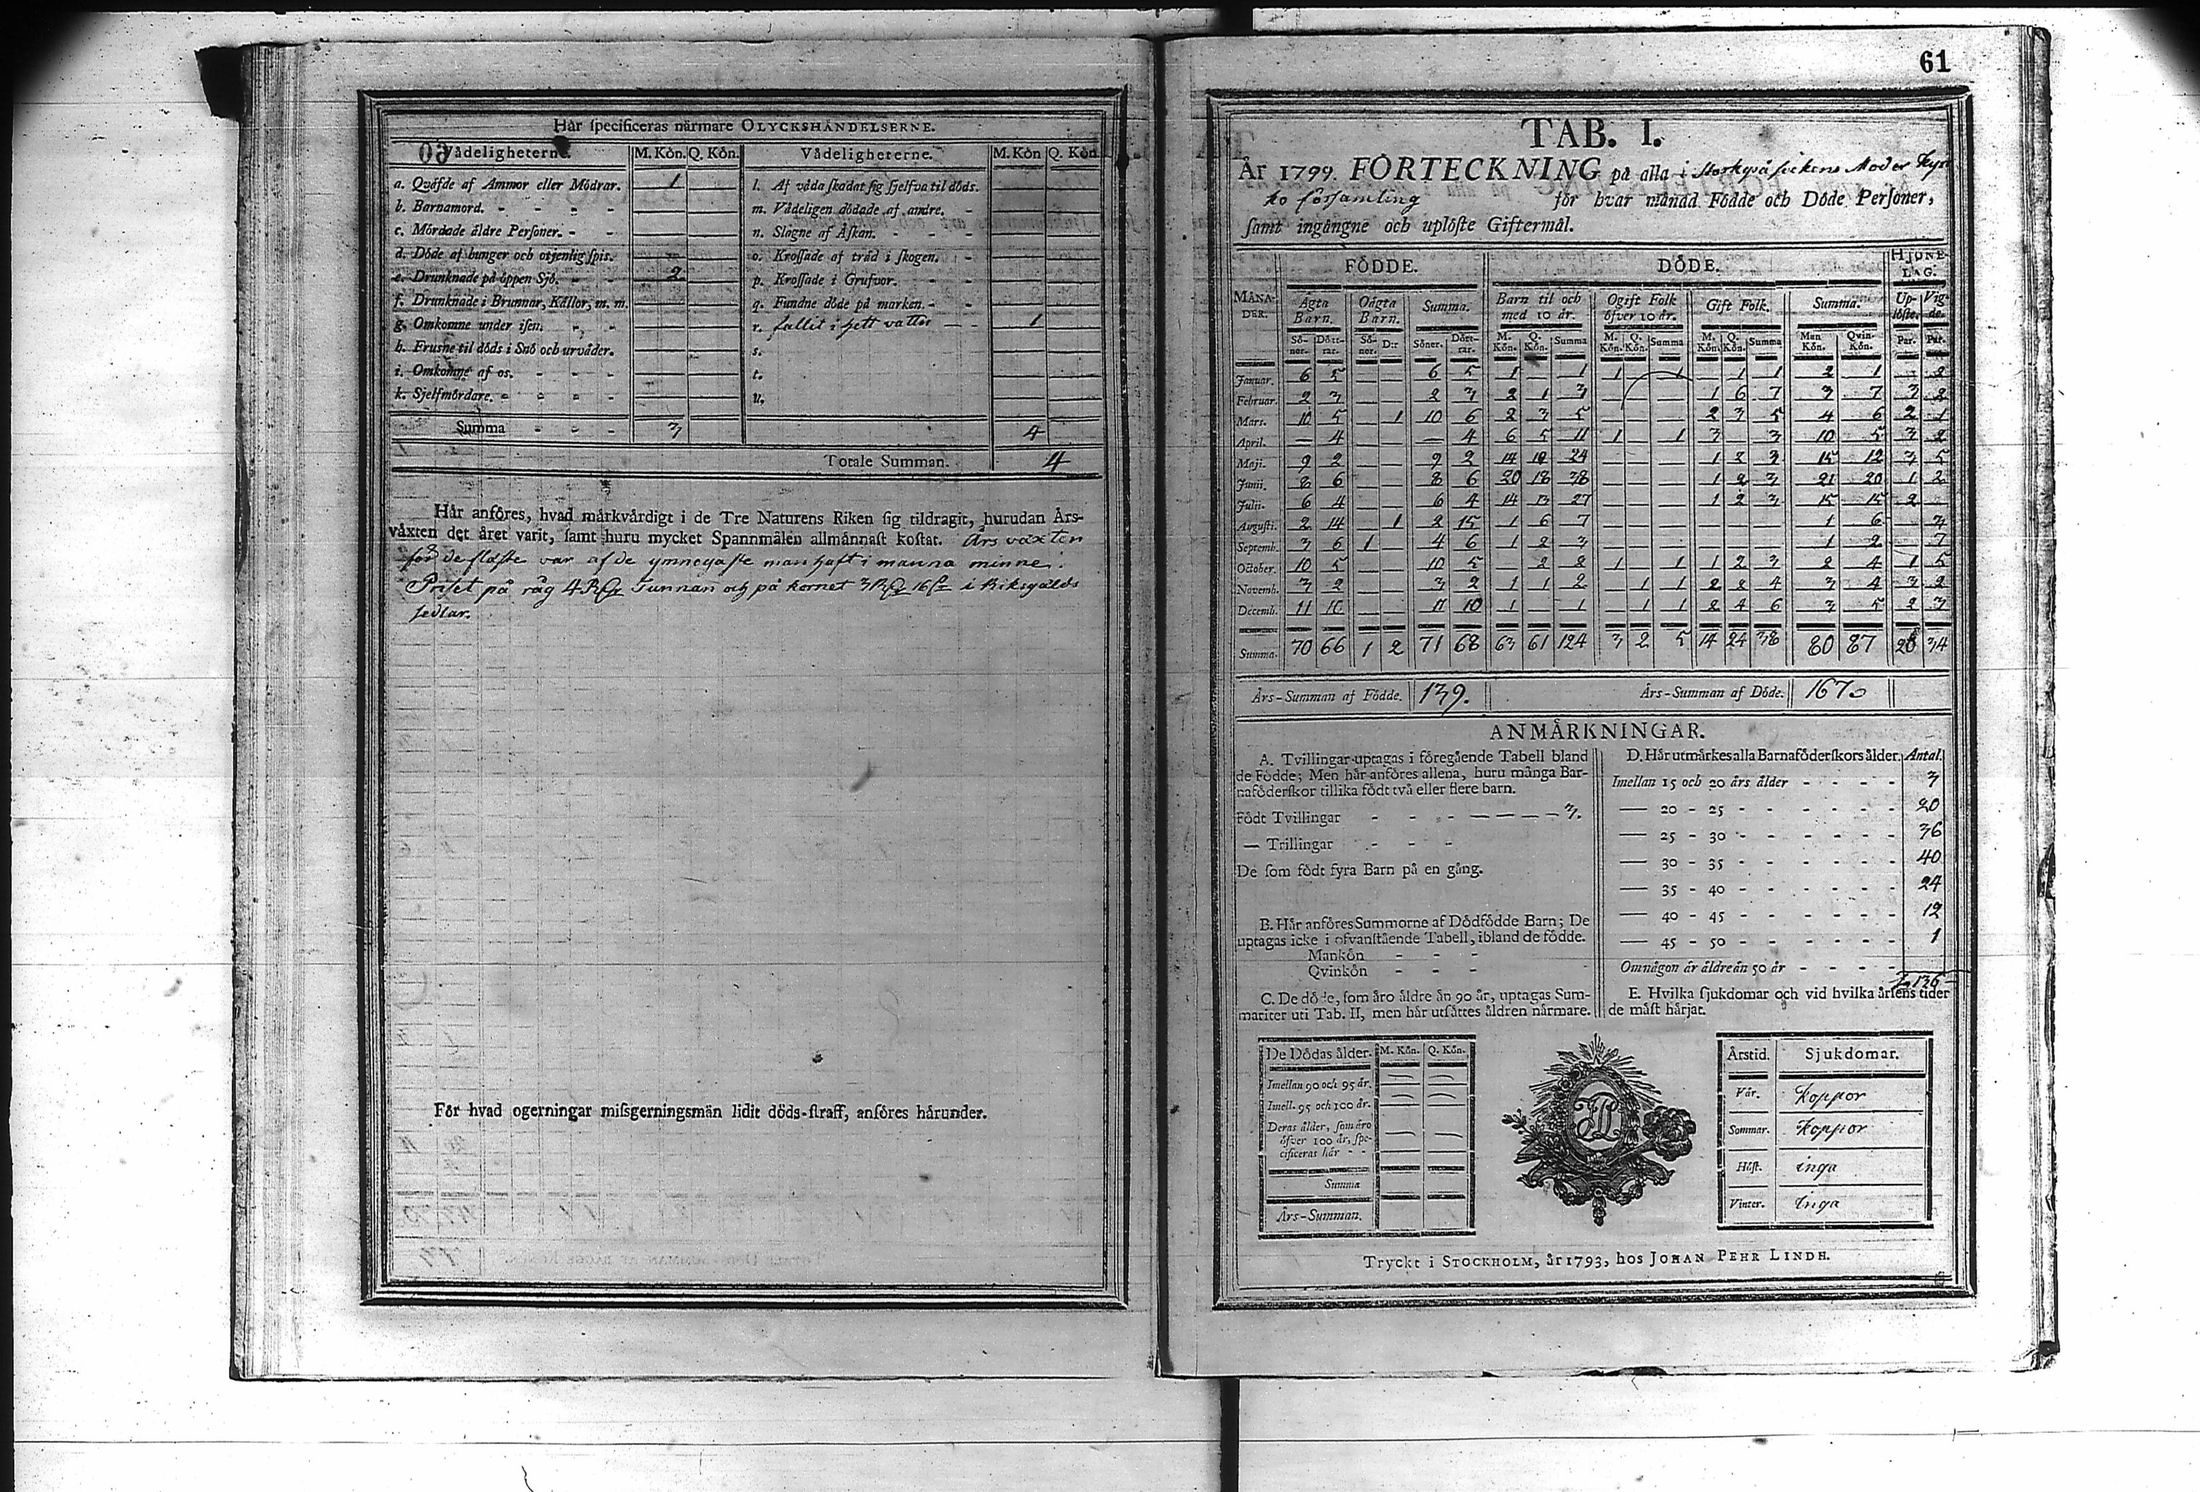 Hår specificeras nårmare OLYCKSHÅNDELSERNE.
60
Vådeligheterne. M. Kôn. Q. Kôn. Vådeligheterne. M. Kôn Q. Kôn
a. Qvåfde af Ammor eller Môdrar. 1 l. Af våda skadat sig sjelfva til dôds.
b. Barnamord. m. Vådeligen dôdade af andre.
c. Môrdade åldre Personer. n. Slagne af Åskan.
d. Dôde af hunger och otjenlig spis. o. Krossade af tråd i skogen.
e. Drunknade på ôppen Sjô. 2 p. Krossade i Grufvor.
f. Drunknade i Brunnar, Kållor, m. m. q. Fundne dôde på marken.
g. Omkomne under isen. r. fallit i hett vatten 1
h. Frusne til dôds i Snô och urvåder. s.
i. Omkomne af os. t.
k. Sjelfmôrdare. u.
Summa 3 4
Totale Summan. 4
Hår anfôres, hvad mårkvårdigt i de Tre Naturens Riken sig tildragit, hurudan Års-
våxten det året varit, samt huru mycket Spannmålen allmånnast kostat. Års växten
för de fläste var af de ymnogaste man haft i manna minne.
Priset på råg 4 R Tunnan och på kornet 3 R 16 i Riksgälds
sedlar.
Fôr hvad ogerningar missgerningsmän lidit dôds-straff, anfôres hårunder.
61
TAB. I.
År 1799. FÔRTECKNING på alla i Storkyrå sockens Moder kyr
ko församling fôr hvar månad Fôdde och Dôde Personer,
samt ingångne och uplôste Giftermål.
FÔDDE. DÔDE. HJONE-
LAG.
MÅNA-
DER. Ågta
Barn. Oågta
Barn. Summa. Barn til och
med 10 år. Ogift Folk
ôfver 10 år. Gift Folk. Summa. Up-
lôste. Vig-
de.
Sô-
ner. Dôtt-
rar. Sô-
ner. D:r Sôner. Dôtt-
rar. M.
Kôn. Q.
Kôn. Summa M.
Kôn. Q.
Kôn. Summa M.
Kôn. Q.
Kôn. Summa Man
Kôn. Qvin-
Kôn. Par. Par.
Januar. 6 5 — — 6 5 1 — 1 1 — 1 — 1 1 2 1 — 2
Februar. 2 3 — — 2 3 2 1 3 — — — 1 6 7 3 7 3 2
Mars. 10 5 — 1 10 6 2 3 5 — — — 2 3 5 4 6 2 1
April. — 4 — — — 4 6 5 11 1 — 1 3 — 3 10 5 3 2
Maji. 9 2 — — 9 2 14 10 24 — — — 1 2 3 15 12 3 5
Junii. 8 6 — — 8 6 20 18 38 — — — 1 2 3 21 20 1 2
Julii. 6 4 — — 6 4 14 13 27 — — — 1 2 3 15 15 2
Augusti. 2 14 — 1 2 15 1 6 7 — — — — — — 1 6 — 3
Septemb. 3 6 1 — 4 6 1 2 3 — — — — — — 1 2 — 7
October. 10 5 — — 10 5 — 2 2 1 — 1 1 2 3 2 4 1 5
Novemb. 3 2 — — 3 2 1 1 2 — 1 1 2 2 4 3 4 3 2
Decemb. 11 10 — — 11 10 1 — 1 — 1 1 2 4 6 3 5 2 3
Summa. 70 66 1 2 71 68 63 61 124 3 2 5 14 24 38 80 87 20 34
Års-Summan af Fôdde. 139. Års-Summan af Dôde. 167
ANMÅRKNINGAR.
A. Tvillingar uptagas i fôregående Tabell bland
de Fôdde; Men hår anfôres allena, huru många Bar-
nafôderskor tillika fôdt två eller flere barn.
Fôdt Tvillingar 3.
— Trillingar
De som fôdt fyra Barn på en gång.
B. Hår anfôres Summorne af Dôdfôdde Barn; De
uptagas icke i ofvanstående Tabell, ibland de fôdde.
Mankôn
Qvinkôn
C. De dôde, som åro åldre ån 90 år, uptagas Sum-
mariter uti Tab. II, men hår utsåttes åldren nårmare.
D. Hår utmårkes alla Barnafôderskors ålder. Antal.
Imellan 15 och 20 års ålder 3
— 20 - 25 20
— 25 - 30 36
— 30 - 35 40
— 35 - 40 24
— 40 - 45 12
— 45 - 50 1
Om någon år åldre ån 50 år
136
E. Hvilka sjukdomar och vid hvilka årsens tider
de måst hårjat.
De Dôdas ålder. M. Kôn. Q. Kôn.
Imellan 90 och 95 år. — —
Imell. 95 och 100 år. — —
Deras ålder, som åro
ôfver 100 år, spe-
cificeras hår — —
Summa
Års-Summan.
Årstid. Sjukdomar.
Vår. Koppor
Sommar. Koppor
Hôst. inga
Vinter. inga
Tryckt i STOCKHOLM, år 1793, hos JOHAN PEHR LINDH.